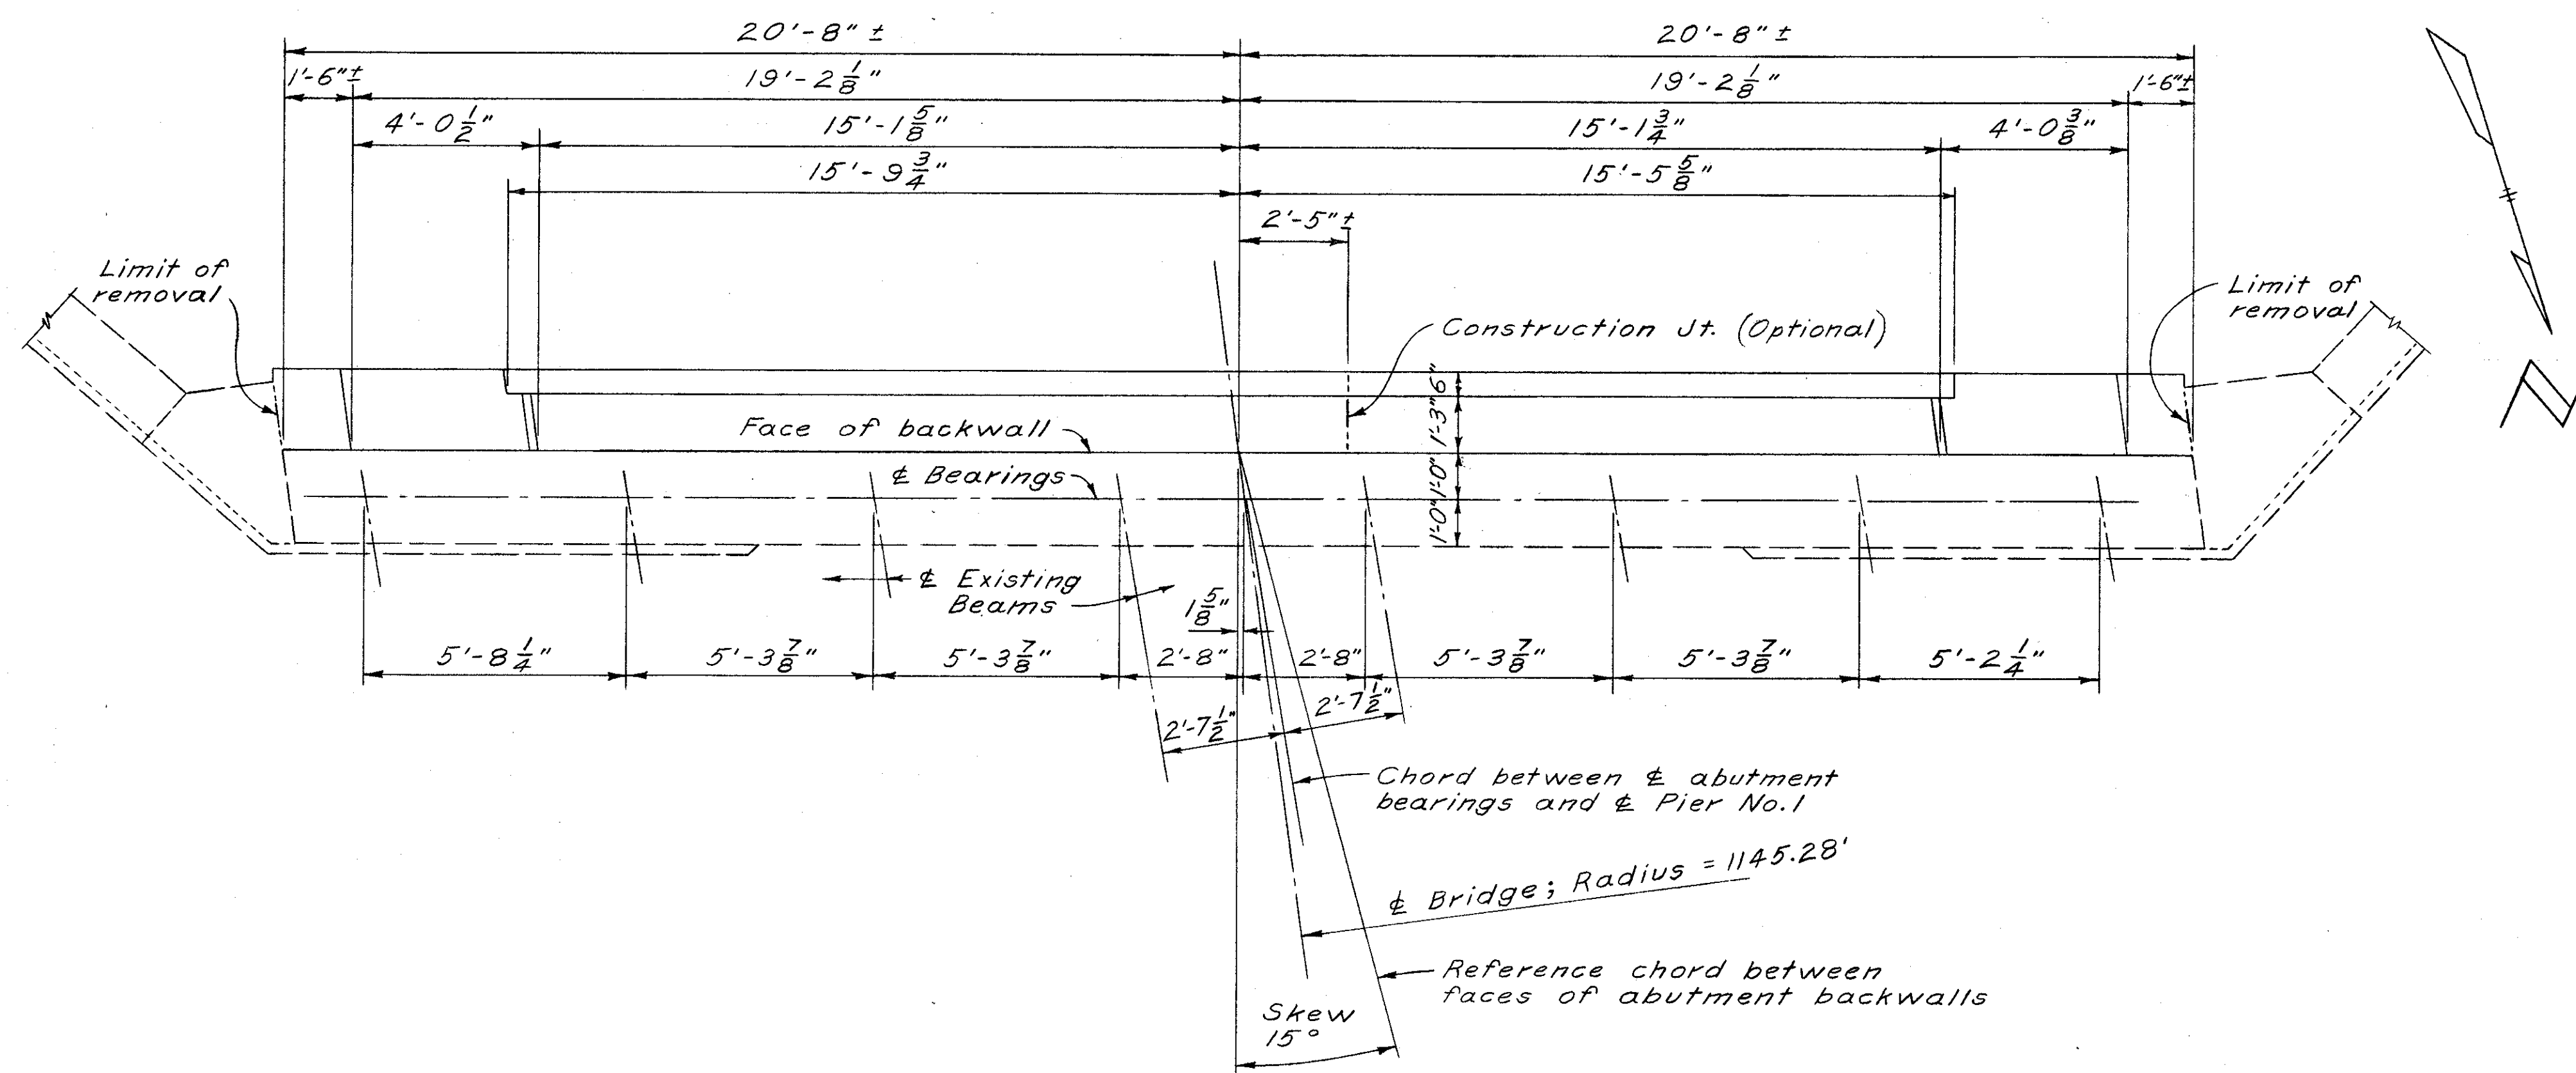 20'-8" ± 20'-8" ±
1'-6"± 19'-2 1/8" 19'-2 1/8" 1'-6"±
4'-0 1/2" 15'-1 5/8" 15'-1 3/4" 4'-0 3/8"
15'-9 3/4" 15'-5 5/8"
2'-5" ±
Limit of
removal
Limit of
removal
Construction Jt. (Optional)
6"
1'-3"
1'-0"
1'-0"
Face of backwall
℄ Bearings
℄ Existing
Beams
1 5/8"
5'-8 1/4" 5'-3 7/8" 5'-3 7/8" 2'-8" 2'-8" 5'-3 7/8" 5'-3 7/8" 5'-2 1/4"
2'-7 1/2" 2'-7 1/2"
Chord between ℄ abutment
bearings and ℄ Pier No.1
℄ Bridge; Radius = 1145.28'
Reference chord between
faces of abutment backwalls
Skew
15°
N